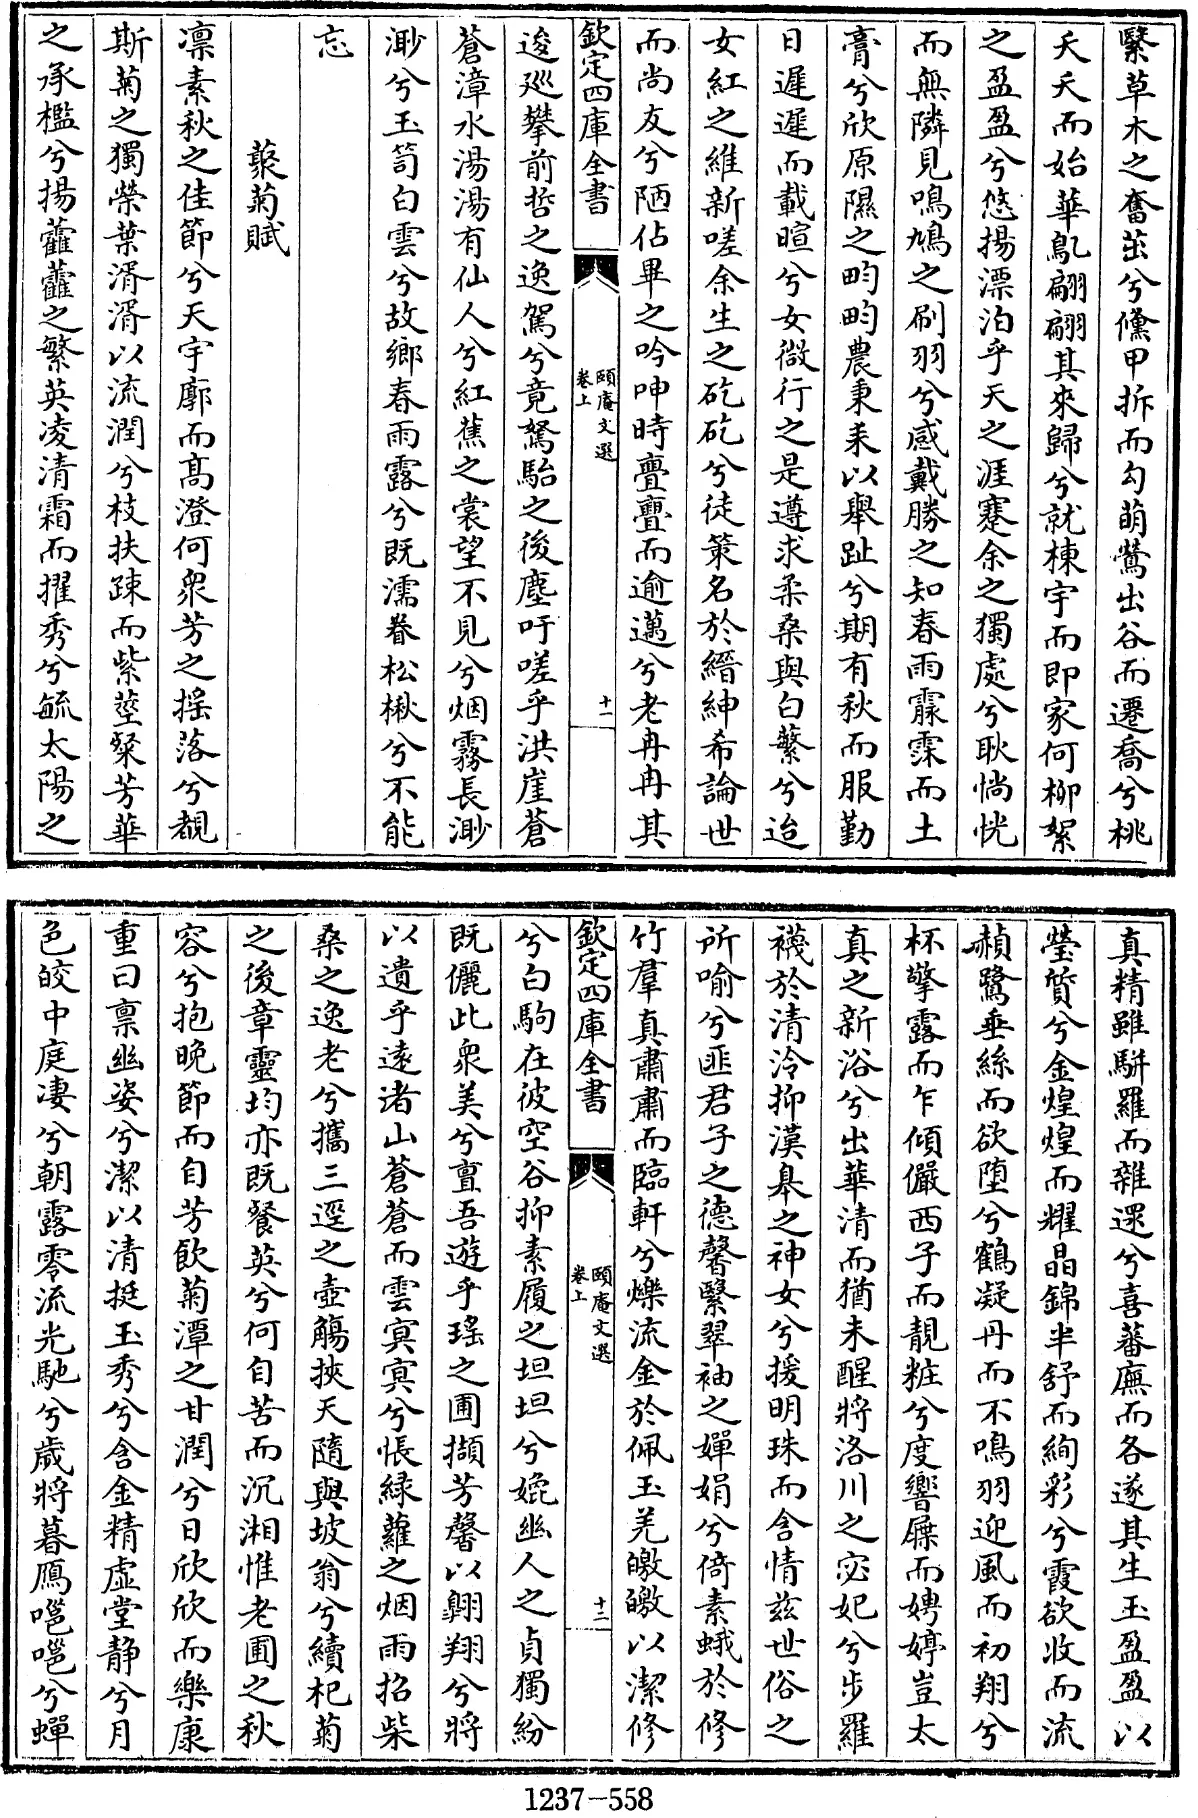 繄草木之奮茁兮儻甲拆而勾萌鶯出谷而遷喬兮桃
夭夭而始華鳦翩翩其來歸兮就棟宇而即家何柳絮
之盈盈兮悠揚漂泊乎天之涯蹇余之獨處兮耿惝恍
而無隣見鳴鳩之刷羽兮感戴勝之知春雨霢霂而土
膏兮欣原隰之畇畇農秉耒以舉趾兮期有秋而服勤
日遲遲而載暄兮女微行之是遵求柔桑與白蘩兮迨
女紅之維新嗟余生之矻矻兮徒策名於縉紳希論世
而尚友兮陋佔畢之吟呻時亹亹而逾邁兮老冉冉其
欽定四庫全書
頤庵文選
卷上
十一
逡巡攀前哲之逸駕兮竟駑駘之後塵吁嗟乎洪崖蒼
蒼漳水湯湯有仙人兮紅蕉之裳望不見兮烟霧長渺
渺兮玉笥白雲兮故鄉春雨露兮既濡眷松楸兮不能
忘
藂菊賦
凛素秋之佳節兮天宇廓而髙澄何衆芳之揺落兮覩
斯菊之獨榮葉湑湑以流潤兮枝扶踈而紫莖粲芳華
之承檻兮揚虇虇之繁英凌清霜而擢秀兮毓太陽之
真精雖駢羅而雜遝兮喜蕃廡而各遂其生玉盈盈以
瑩質兮金煌煌而耀晶錦半舒而絢彩兮霞欲收而流
赬鷺垂絲而欲堕兮鶴凝丹而不鳴羽迎風而初翔兮
杯擎露而乍傾儼西子而靚粧兮度響屧而娉婷豈太
真之新浴兮出華清而猶未醒將洛川之宓妃兮步羅
襪於清泠抑漢臯之神女兮援明珠而含情兹世俗之
所喻兮匪君子之德馨繄翠袖之嬋娟兮倚素蛾於修
竹羣真肅肅而臨軒兮爍流金於佩玉羌皦皦以潔修
欽定四庫全書
頤庵文選
卷上
十二
兮白駒在彼空谷抑素履之坦坦兮媲幽人之貞獨紛
既儷此衆美兮亶吾遊乎瑤之圃擷芳馨以翺翔兮將
以遺乎遠渚山蒼蒼而雲冥冥兮悵緑蘿之烟雨招柴
桑之逸老兮攜三逕之壺觴挾天隨與坡翁兮續杞菊
之後章靈均亦既餐英兮何自苦而沉湘惟老圃之秋
容兮抱晚節而自芳飲菊潭之甘潤兮日欣欣而樂康
重曰禀幽姿兮潔以清挺玉秀兮含金精虚堂静兮月
色皎中庭凄兮朝露零流光馳兮歳將暮鴈嗈嗈兮蟬
1237-558